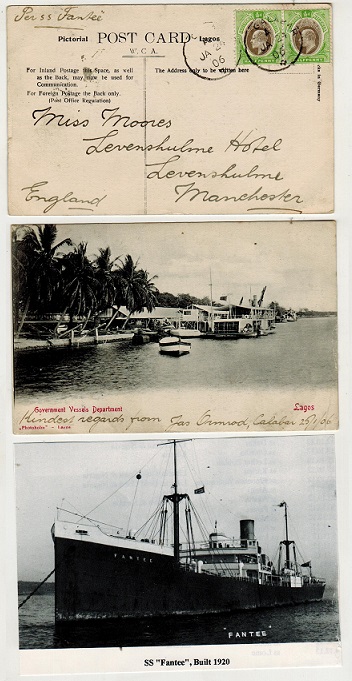 Per ss Fantee
Pictorial POST CARD Lagos
W. C. A.
For Inland Postage this Space, as well
as the Back, may now be used for
Communication.
For Foreign Postage the Back only.
(Post Office Regulation)
The Address only to be written here
JA 24
06
Miss Moores
Levenshulme Hotel
Levenshulme
England Manchester
Government Vessels Department Lagos
"Photoholm" - Lagos
Kindest regards from Jas Ormrod, Calabar 25/1/06
FANTEE
FANTEE
SS "Fantee", Built 1920